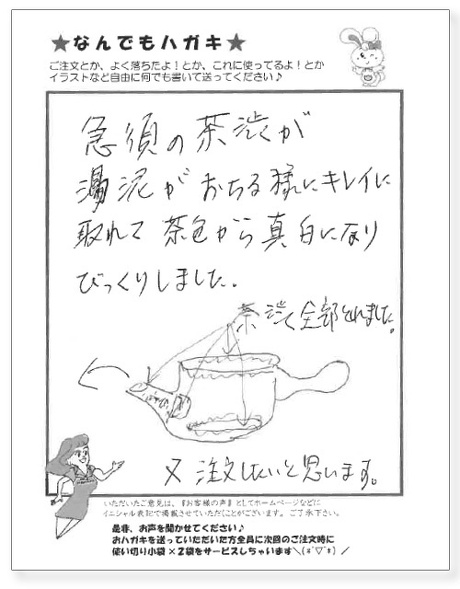 ★なんでもハガキ★
ご注文とか、よく落ちたよ！とか、これに使ってるよ！とか
イラストなど自由に何でも書いて送ってください♪
急須の茶渋が
泥がおちる様にキレイに
取れて茶色から真白になり
びっくりしました。
茶渋全部とれました。
又注文したいと思います。
いただいたご意見は、『お客様の声』としてホームページなどに
イニシャル表記で掲載させていただくことがございます。ご了承下さい。
是非、お声を聞かせてください♪
おハガキを送っていただいた方全員に次回のご注文時に
使い切り小袋×2袋をサービスしちゃいます＼(*ﾟ▽ﾟ*)／